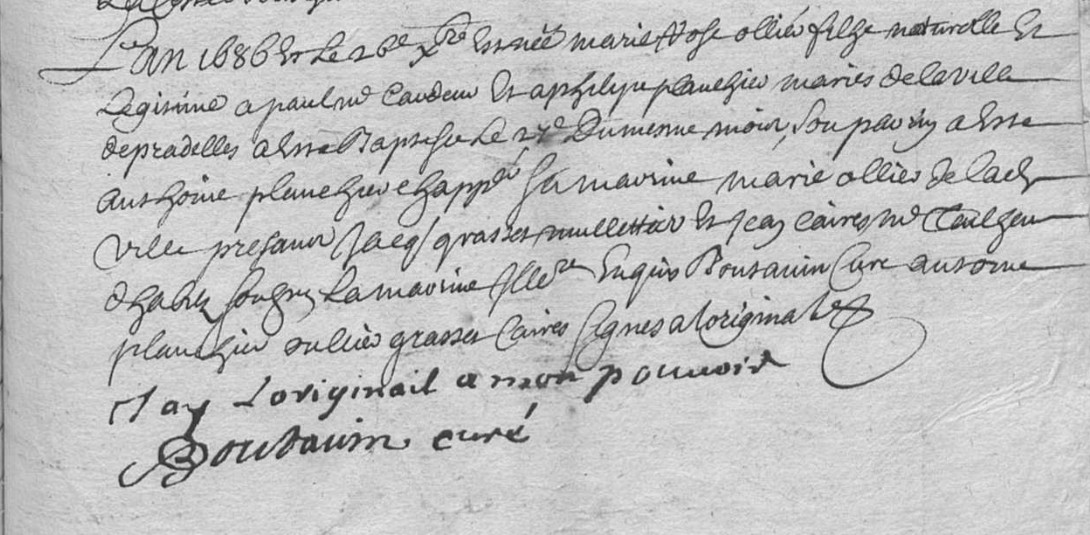 L'an 1686 et le 26e xbre est née marie Rose ollier filhe naturelle Et
Legitime a paul md Et a philipe planchier maries de la ville
de pradelles a este Baptisée Le 27e Du mesme mois, son parrin a este
anthoine planchier sa marrine marie ollier de lad
ville presans Jacq grasset mullettier Et Jean Caires md
La marrine Illere Enquis Boutavin Cure antoine
planchier ollier grasset Caires signes a loriginal
Jay Loriginail a mon pouvoir
Boutavin curé